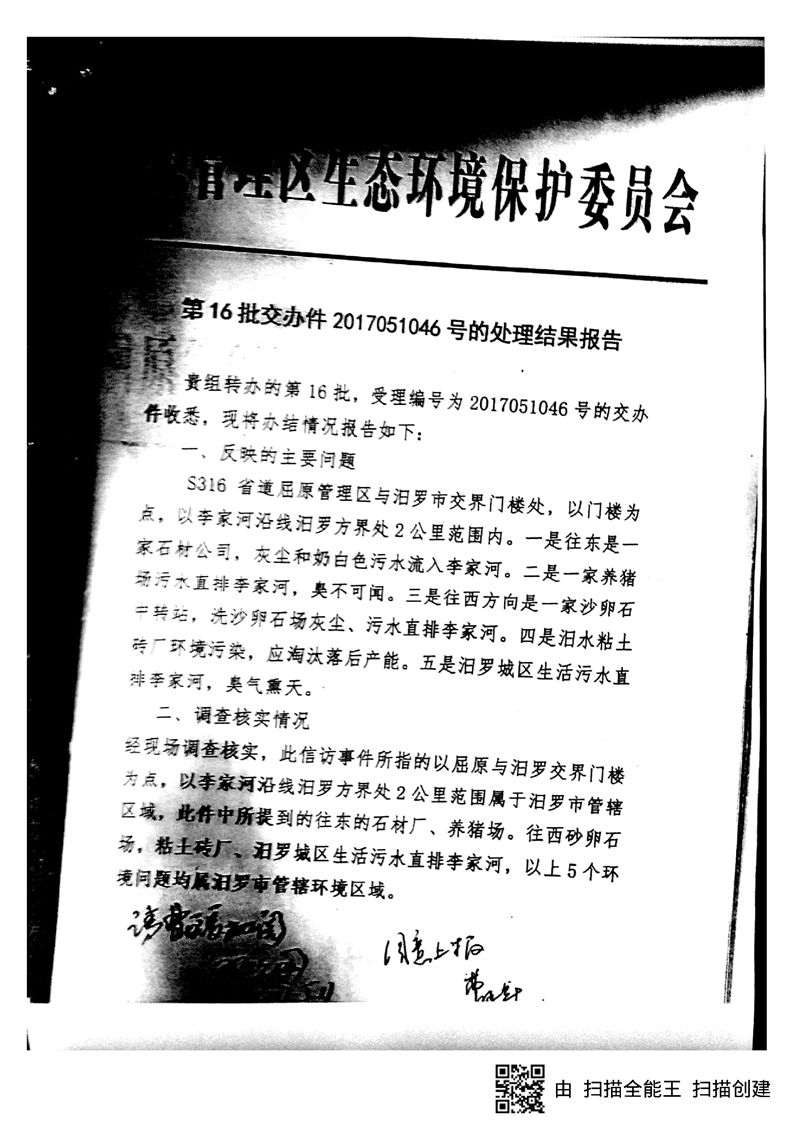 管理区生态环境保护委员会
第16批交办件2017051046号的处理结果报告
贵组转办的第16批，受理编号为2017051046号的交办
件收悉，现将办结情况报告如下：
一、反映的主要问题
S316 省道屈原管理区与汨罗市交界门楼处，以门楼为
点，以李家河沿线汨罗方界处2公里范围内。一是往东是一
家石材公司，灰尘和奶白色污水流入李家河。二是一家养猪
场污水直排李家河，臭不可闻。三是往西方向是一家沙卵石
中转站，洗沙卵石场灰尘、污水直排李家河。四是汨水粘土
砖厂环境污染，应淘汰落后产能。五是汨罗城区生活污水直
排李家河，臭气熏天。
二、调查核实情况
经现场调查核实，此信访事件所指的以屈原与汨罗交界门楼
为点，以李家河沿线汨罗方界处2公里范围属于汨罗市管辖
区域，此件中所提到的往东的石材厂、养猪场。往西砂卵石
场，粘土砖厂、汨罗城区生活污水直排李家河，以上5个环
境问题均属汨罗市管辖环境区域。
同意上报
由 扫描全能王 扫描创建